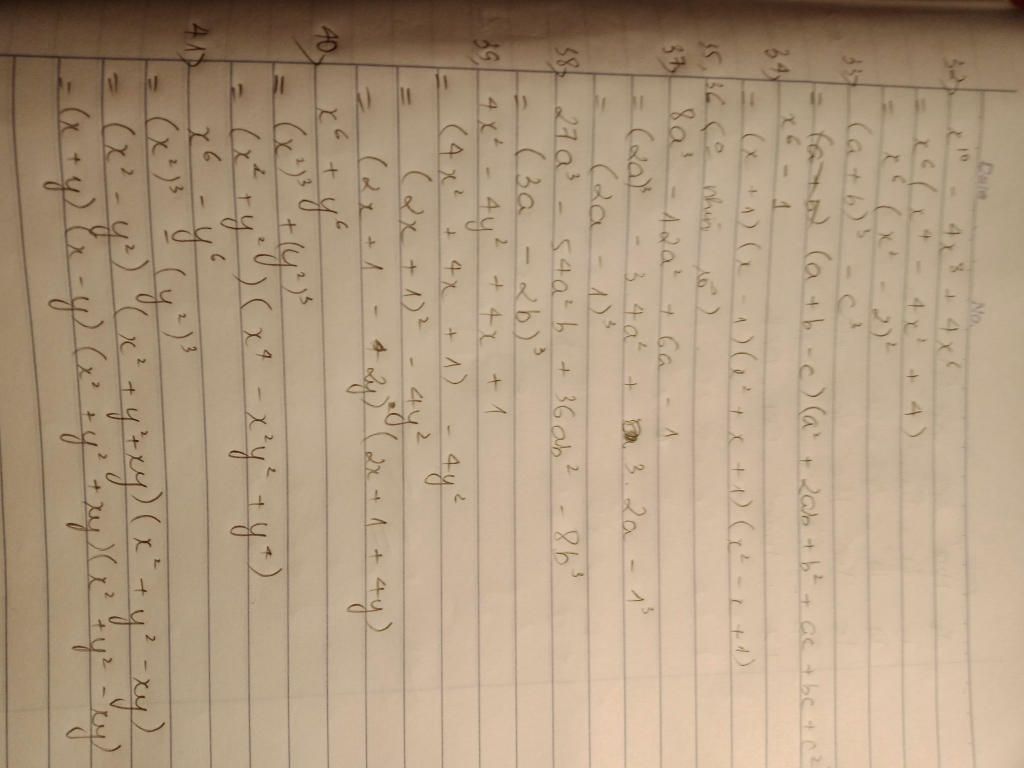 Date No.
32) x¹⁰ - 4x⁸ + 4x⁶
= x⁶ (x⁴ - 4x² + 4)
= x⁶ (x² - 2)²
33) (a + b)³ - c³
= (a + b - c) (a² + 2ab + b² + ac + bc + c²
34) x⁶ - 1
= (x + 1) (x - 1) (x² + x + 1) (x² - x + 1)
35, 36 (
37) 8a³ - 12a² + 6a - 1
= (2a)³ - 3 4a² + 3. 2a - 1³
= (2a - 1)³
38) 27a³ - 54a²b + 36ab² - 8b³
= (3a - 2b)³
39, 4x² - 4y² + 4x + 1
= (4x² + 4x + 1) - 4y²
= (2x + 1)² - 4y²
= (2x + 1 - 2y) (2x + 1 + 4y)
40) x⁶ + y⁶
= (x²)³ + (y²)³
= (x² + y²) (x⁴ - x²y² + y⁴)
41) x⁶ - y⁶
= (x²)³ - (y²)³
= (x² - y²) (x² + y² + xy) (x² + y² - xy)
= (x + y) (x - y) (x² + y² + xy) (x² + y² - xy)